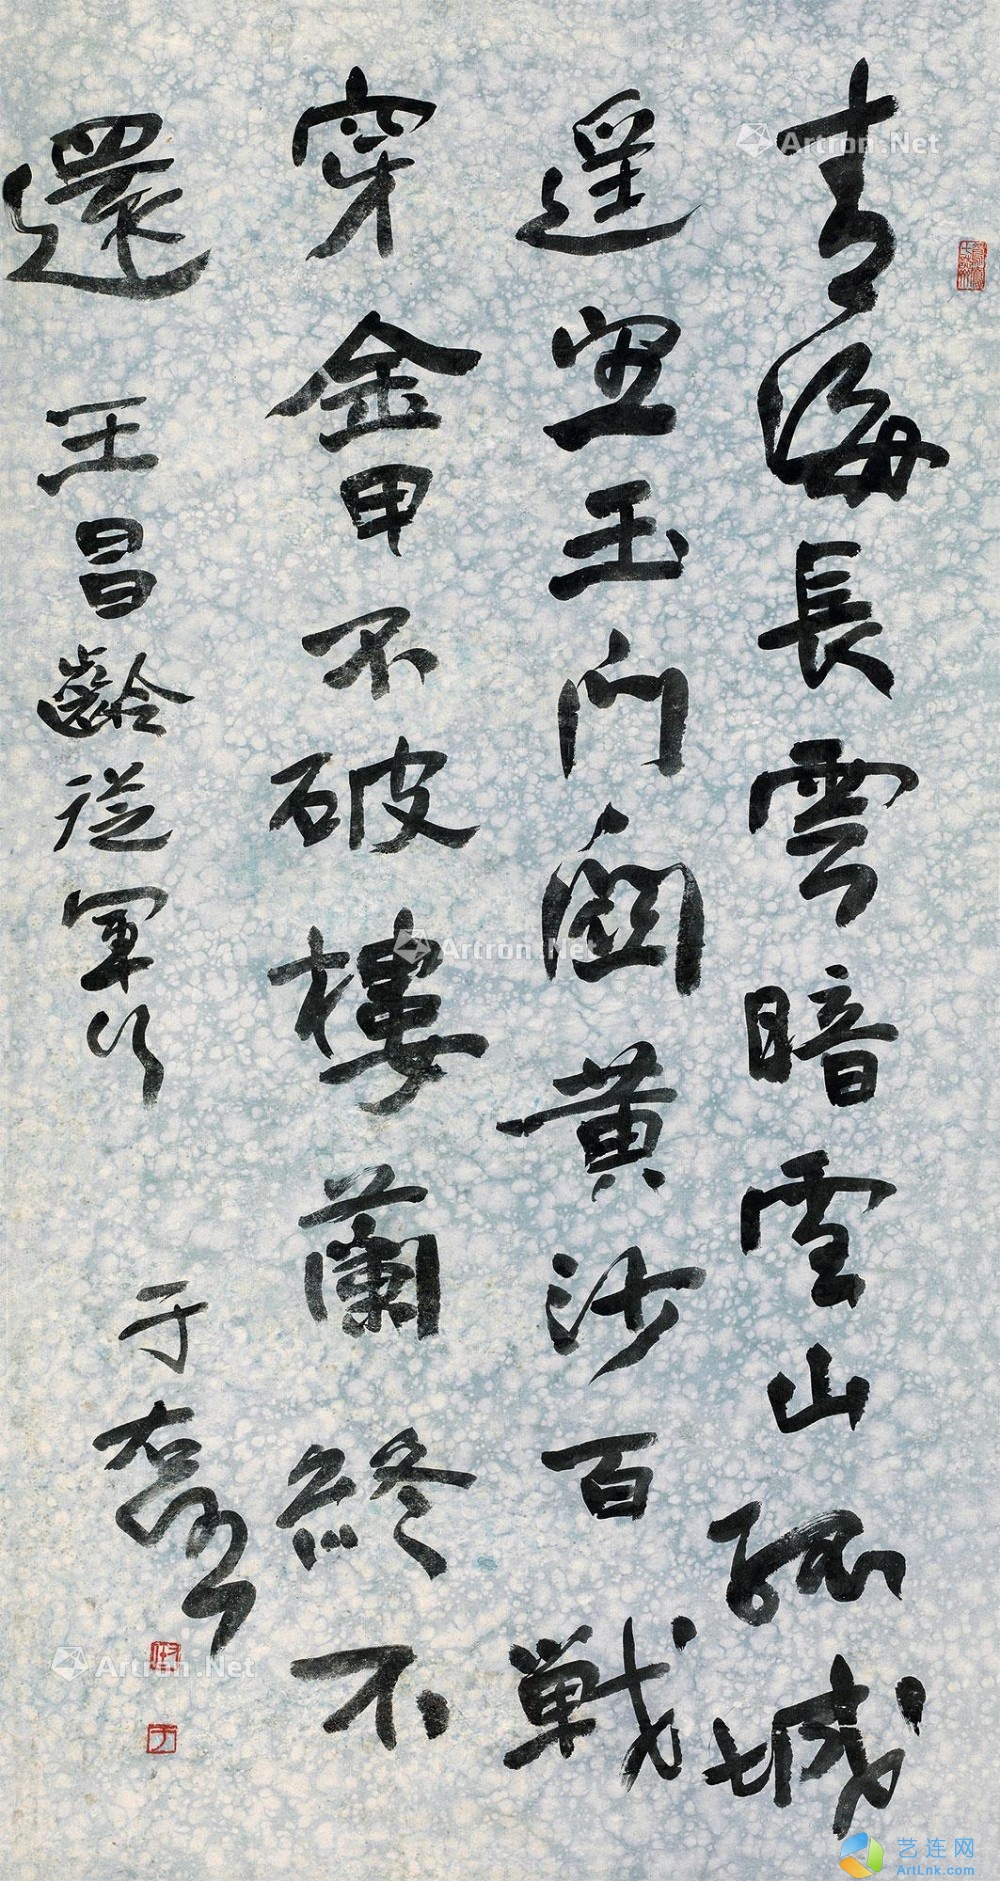 青海長雲暗雪山孤城
遥望玉門關黄沙百戦
穿金甲不破樓蘭終不
還 王昌齡從軍行
于
Artron.Net
Artron.Net
Artron.Net
艺连网
ArtLnk.com